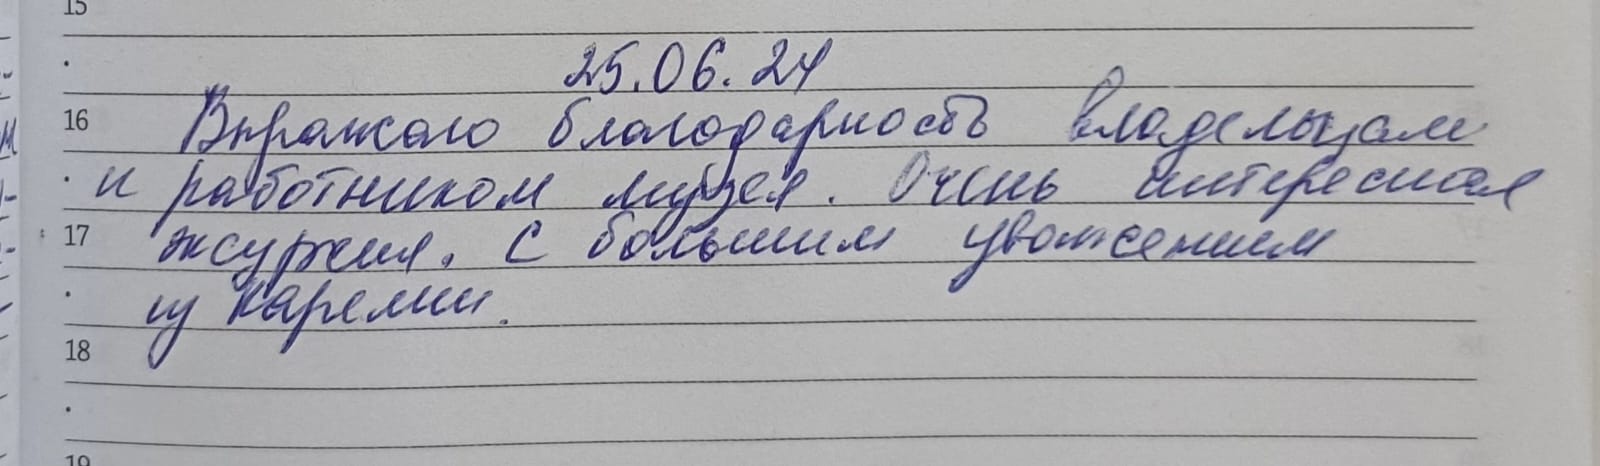 15
25.06.24
16 Выражаю благодарность владельцам
и работником музея. Очень интересная
17 эксурсия. С большим уважением
из Карелии.
18
19